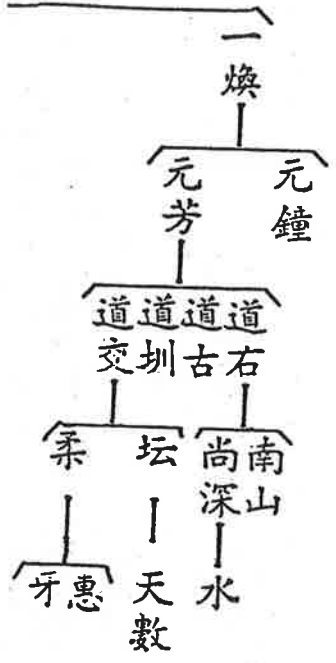 一煥
元鐘
元芳
道右
道古
道圳
道交
南山
尚深
坛
柔
水
天數
惠
牙